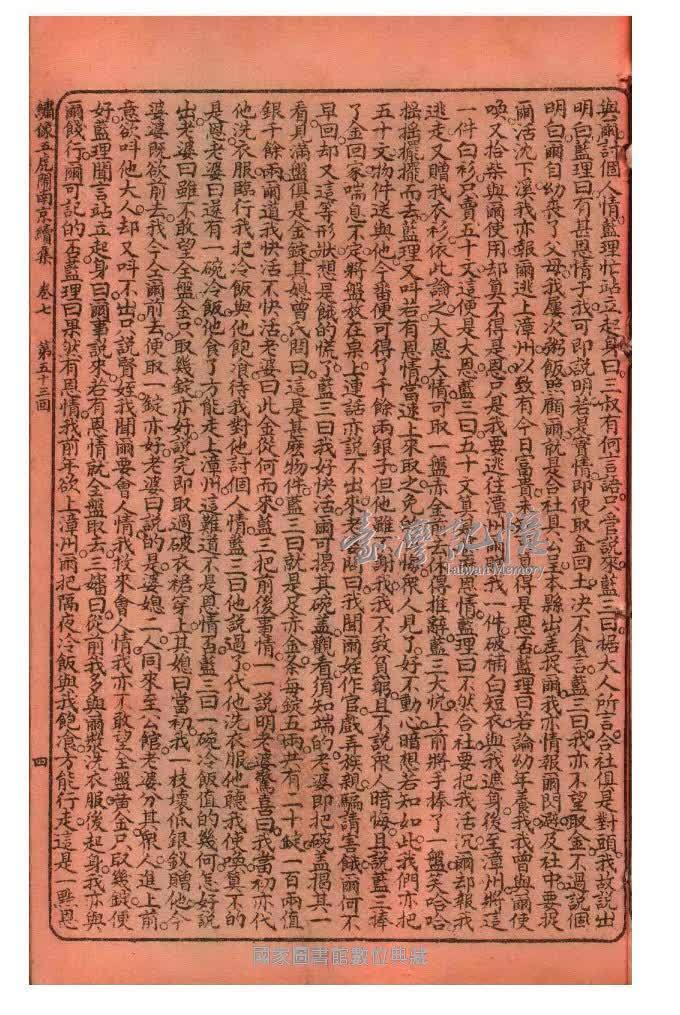 與爾討個人情藍理忙站立起身曰三叔有何言語只管說來藍三曰據大人所言合社俱是對頭我故說出
明曰藍理曰有甚恩情乎我可即說明若是實情即便取金回土決不食言藍三曰我亦不望取金不過說個
明白爾自幼喪了父母我屢次粥飯照顧爾就是合社具公呈本縣出差捉爾我亦情報爾閃避及社中要捉
爾活沈下溪我亦報爾逃上漳州以致有今日富貴未 得是恩否藍理曰若論幼年養我我曾與爾使
喚又拾柴與爾使用却算不得是恩只是我要逃往漳州爾 我一件破補白短衣與我遮身後至漳州將這
一件白衫只賣五十文這便是大恩藍三曰五十文算 恩情藍理曰不然合社要把我活沉爾却報我
逃走又贈我衣衫依此論之大恩大情可取一盤赤金 去 得推辭藍三大悅上前將手捧了一盤笑哈哈
搖搖擺擺而去藍理又叫若有恩情當速上來取之免 悔眾人見了好不動心暗想若知如此我們亦把
五十文物件送與他今番便可得了千餘兩銀子但他雖 謝我我不致貧窮且不說眾人暗悔且說藍三捧
了金回家喘息不定將盤放在桌上連話亦說不出來夫 問曰我聞爾姪作官戲弄族親騙請害餓爾何不
早回却又這等形狀想是餓的慌了藍三曰我好快活爾可揭其碗蓋觀看須知端的老婆即把碗蓋揭其一
看見滿盤俱是金錠其媳曾氏問曰這是甚麼物件藍三曰就是足赤金条每錠五兩共有二十錠一百兩值
銀千餘兩爾道我快活不快活老婆曰此金從何而來藍三把前後事情一一說明老婆驚喜曰我當初亦代
他洗衣服臨行我把冷飯與他飽飡待我對他討個人情藍三曰他說過了代他洗衣服他聽我使喚算不的
是恩老婆曰遂有一碗冷飯他食了方能走上漳州這難道不是恩情否藍三曰一碗冷飯值的幾何怎好說
出老婆曰雖不敢望全盤金只取幾錠亦好說完即取過破衣裙穿上其媳曰當初我一枝壞低銀釵贈他今
婆婆既欲前去我今仝爾前去便取一錠亦好老婆曰說的是婆媳二人同來至公館老婆分其眾人進上前
意欲叫他大人却又叫不出口只說賢姪我聞爾要會人情我投來會人情我亦不敢望全盤黃金只取幾錠便
好藍理聞言站立起身曰爾事說來若有恩情就全盤取去三嬸曰從前我多與爾漿洗衣服後起身我亦與
爾餞行爾可記的否藍理曰果然有恩情我前年欲上漳州爾把隔夜冷飯與我飽飡方能行走這是一點恩
繡像五虎鬧南京續集 卷七 第五十三回 四
臺灣記憶
Taiwan Memory
國家圖書館數位典藏